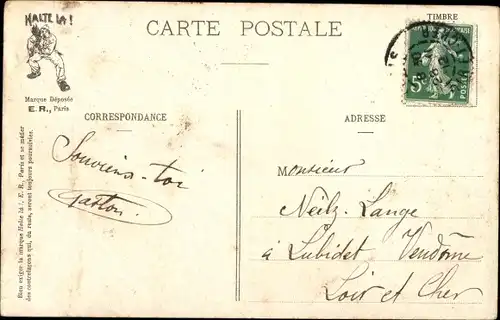 HALTE LÀ !
Marque Déposée
E.R., Paris
CARTE POSTALE
TIMBRE
5c
POSTES
CORRESPONDANCE
ADRESSE
Souviens-toi
Gaston
Monsieur
Neilz-Lange
à Lubidet Vendôme
Loir et Cher
Bien exiger la marque Halte là !, E. R., Paris et se méfier
des contrefaçons qui, du reste, seront toujours poursuivies.